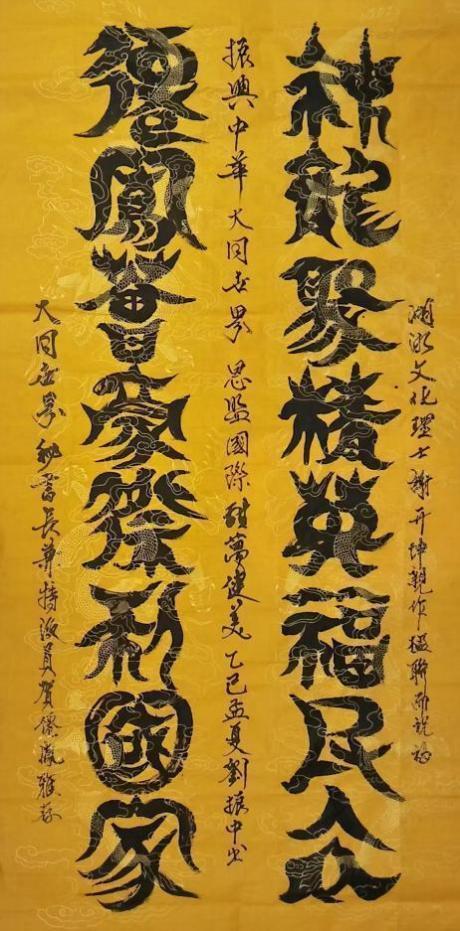 湖湘文化理士謝开坤親作楹聯
神龍聚積英福民众
振興中華 大同世界 思監國際 健美 乙巳孟夏劉振中书
鳳普豪利國家
大同世界秘書長兼特派員賀雅存